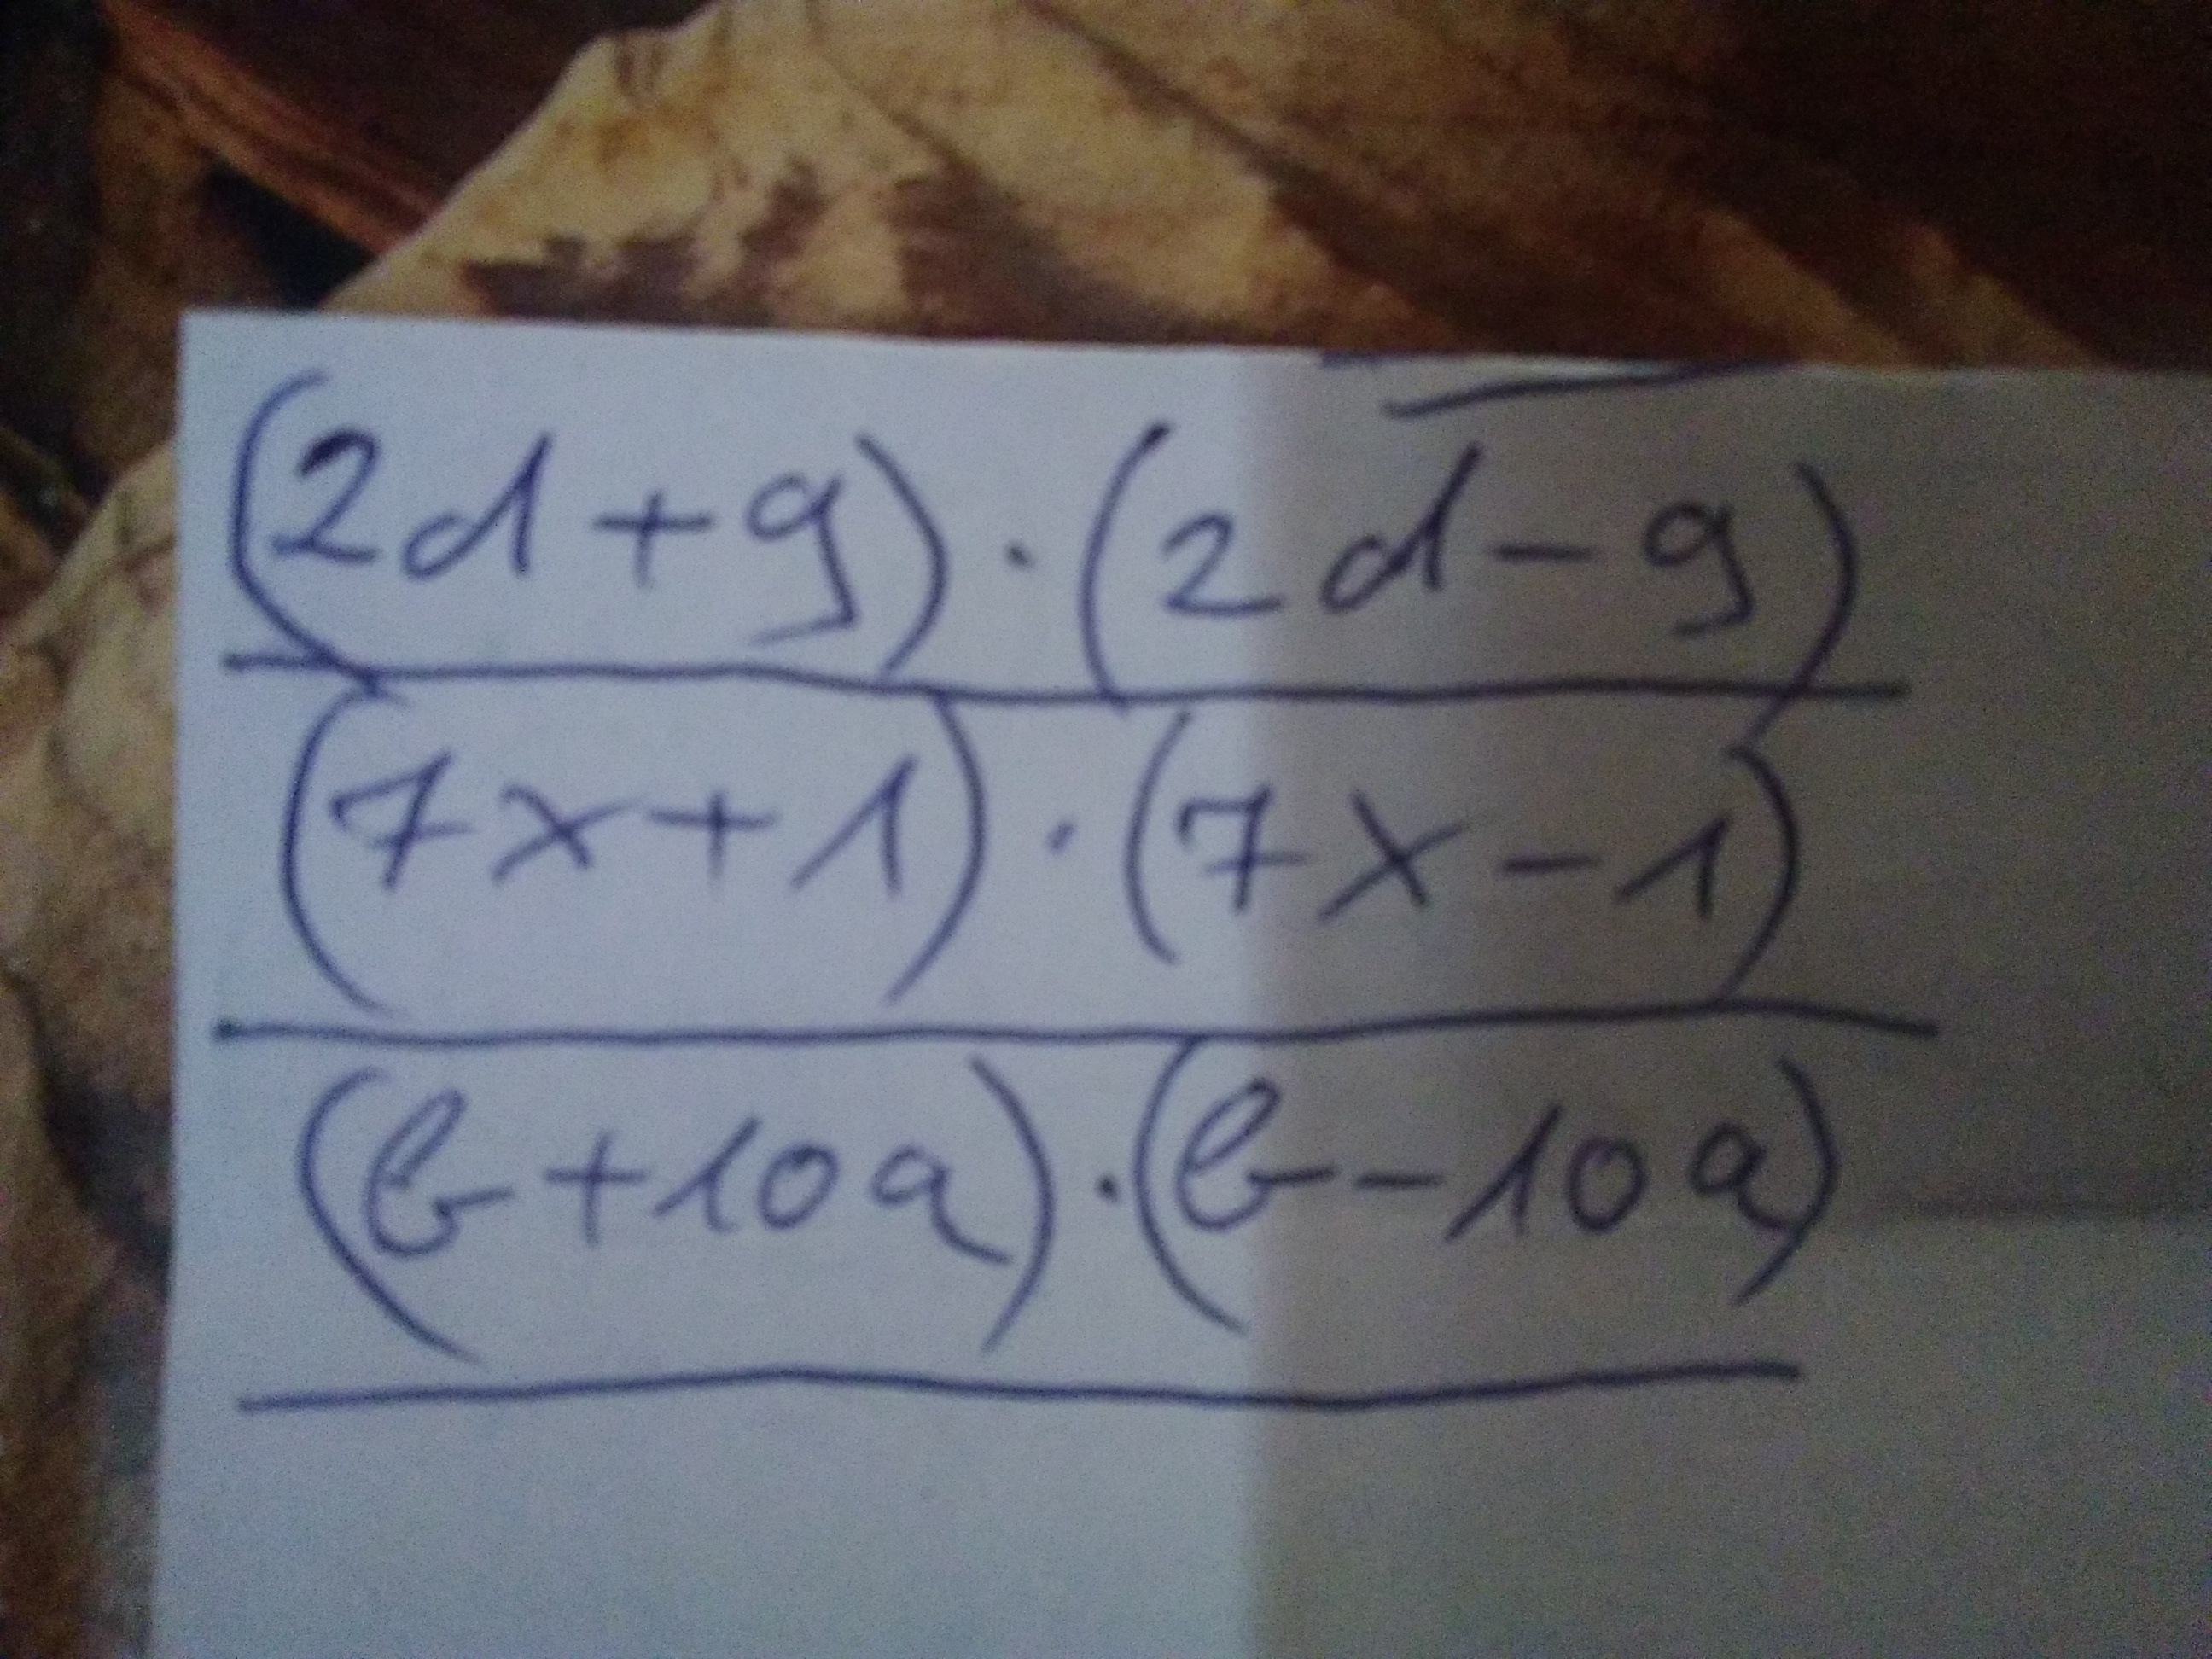 (2d+g)·(2d-g)
(7x+1)·(7x-1)
(b+10a)·(b-10a)